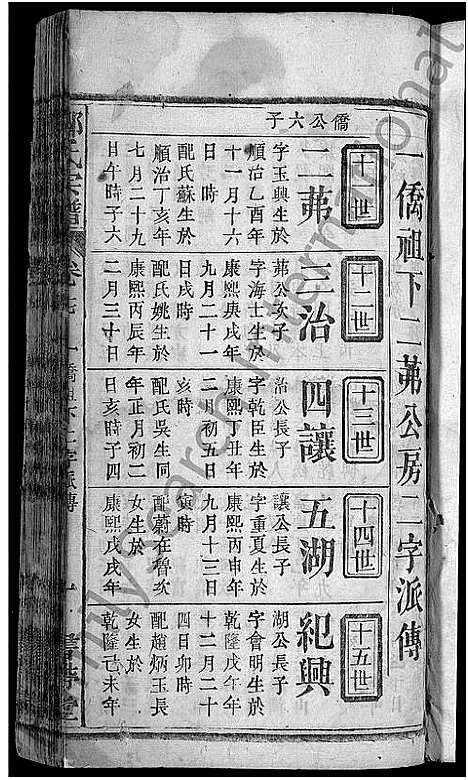 一僑祖下二茀公房二字派傳
十一世
僑公六子
二茀
字玉興生於
順治乙酉年
十一月十六
日 時
配氏蘇生於
順治丁亥年
七月二十九
日午時子六
十二世
三治
茀公次子
字海士生於
康熙庚戌年
九月二十一
日戌時
配氏姚生於
康熙丙辰年
二月三十日
十三世
四讓
治公長子
字乾臣生於
康熙丁丑年
二月初五日
亥時
配氏吳生同
年正月初二
日亥時子四
十四世
五湖
讓公長子
字重夏生於
康熙丙申年
九月十三日
寅時
配蔚在魯次
女生於
康熙戊戌年
十五世
紀興
湖公長子
字會明生於
乾隆戊午年
十二月二十
四日卯時
配趙炳玉長
女生於
乾隆己未年
氏宗譜
卷
一僑祖下二字派傳
Only search International